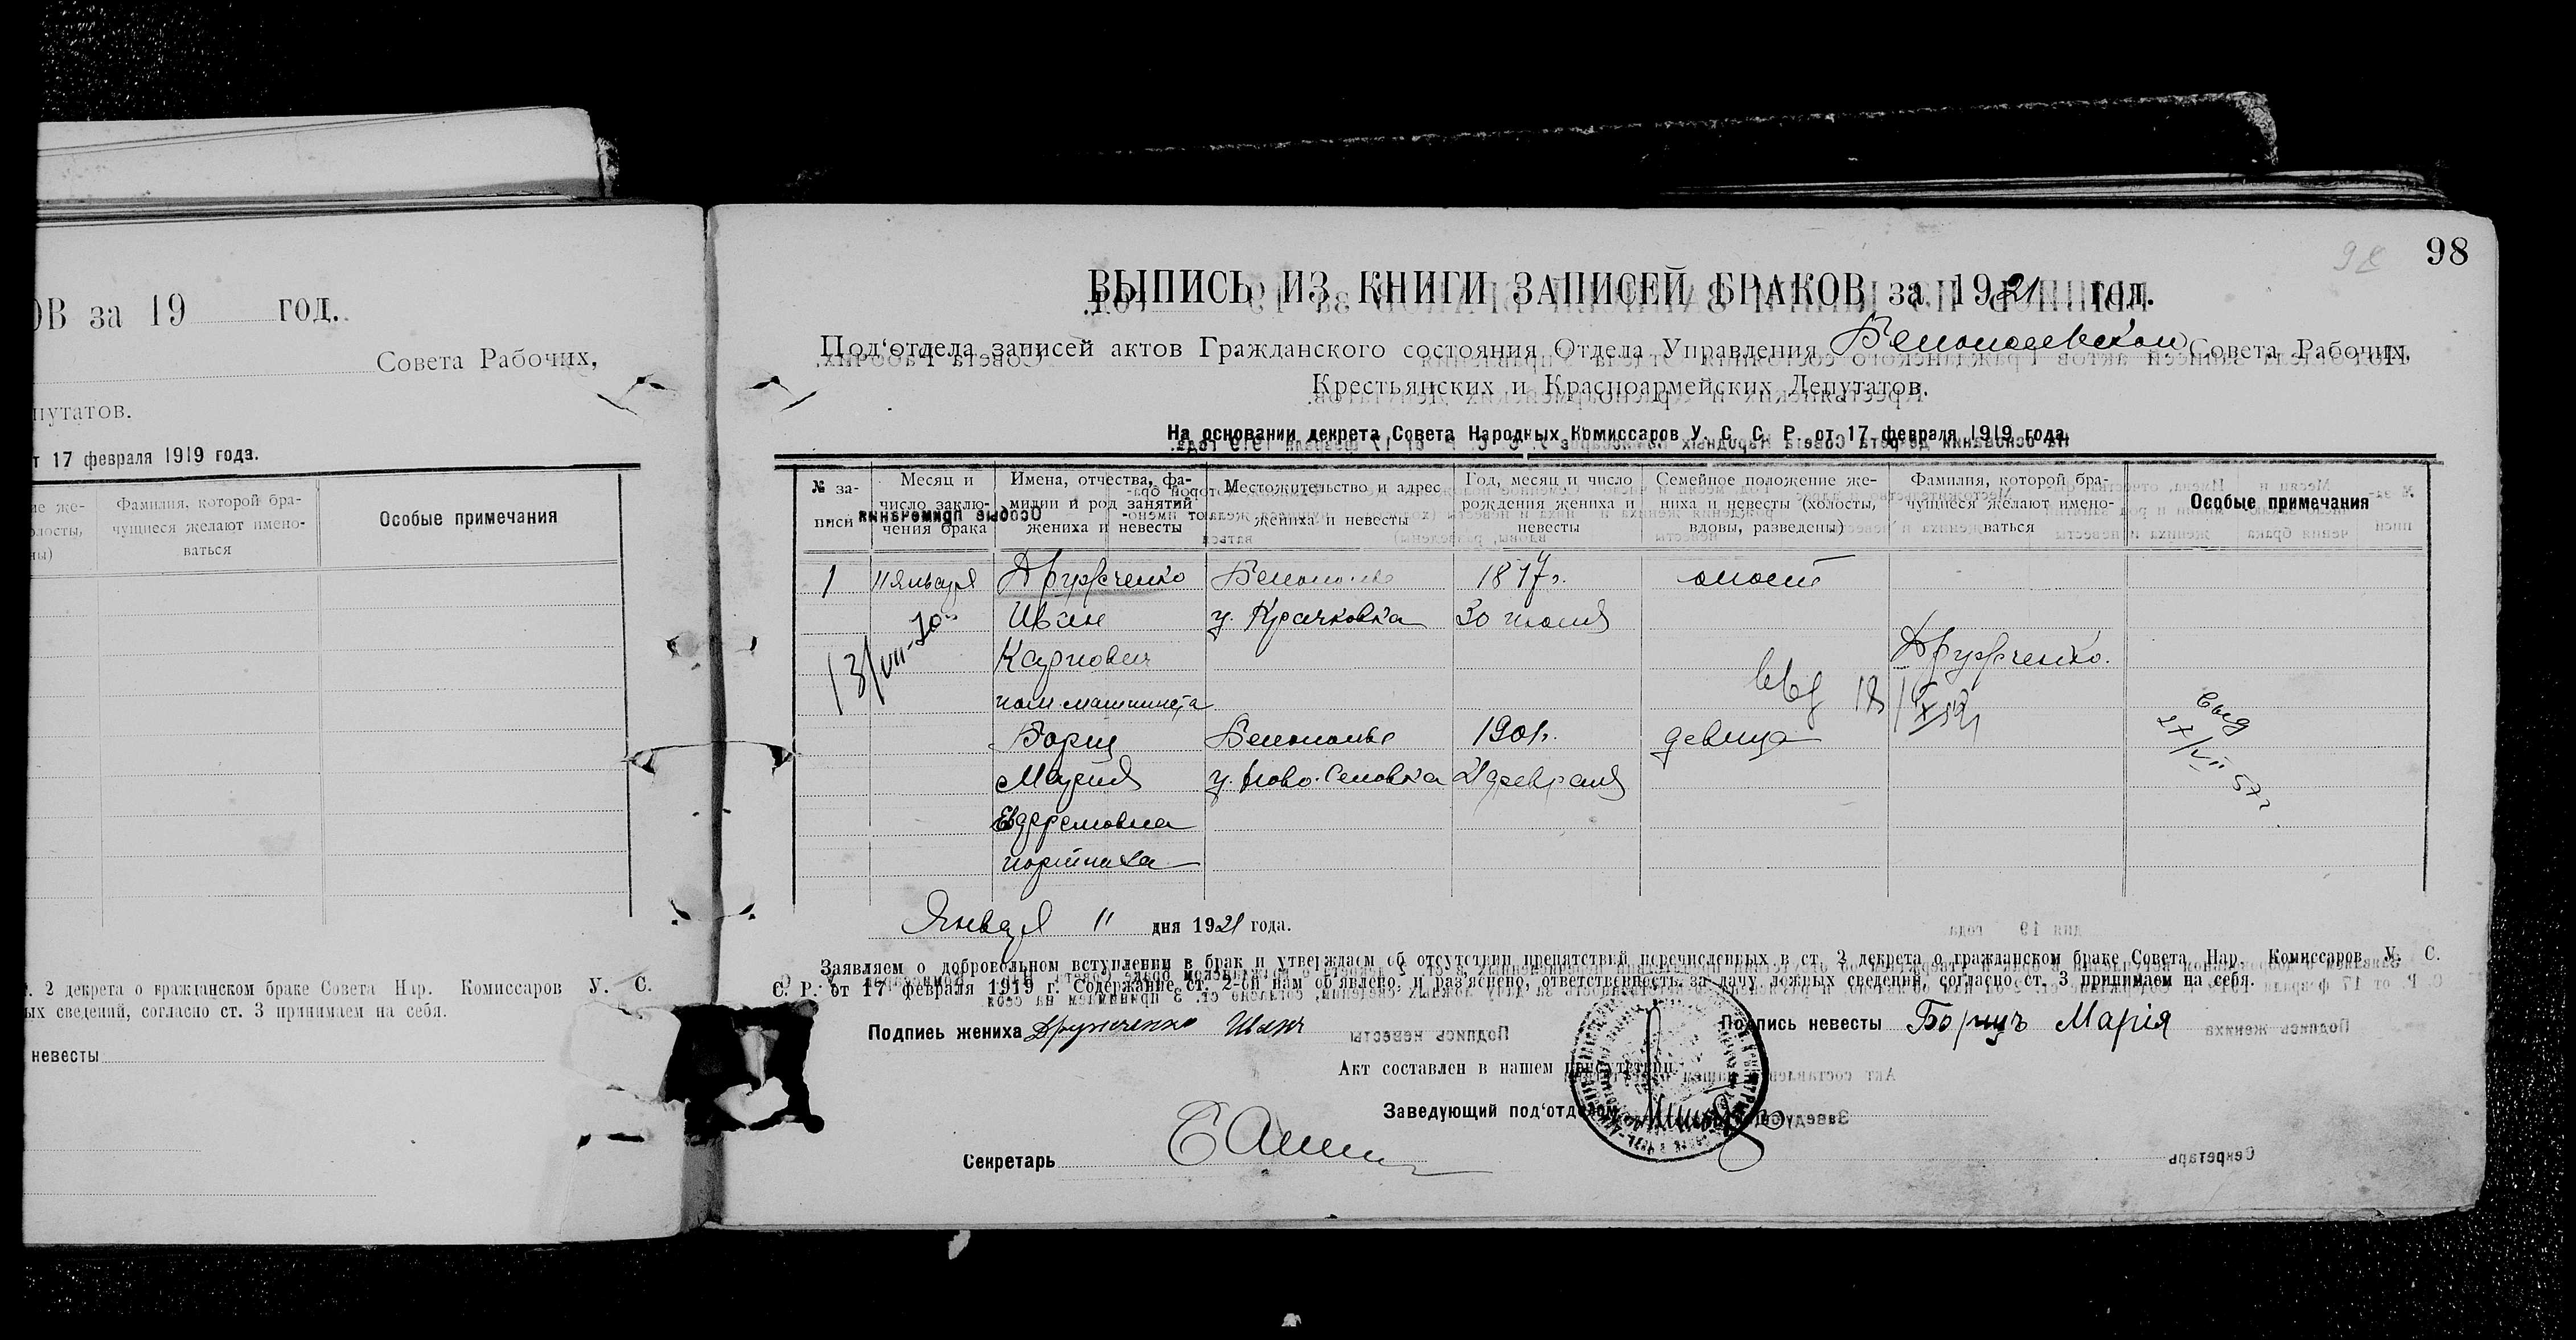 98
ОВ за 19 год.
Совета Рабочих,
путатов.
т 17 февраля 1919 года.
ие же-
олосты,
ны)
Фамилия, которой бра-
чущиеся желают имено-
ваться
Особые примечания
. 2 декрета о гражданском браке Совета Нар. Комиссаров У. С.
ых сведений, согласно ст. 3 принимаем на себя.
невесты
ВЫПИСЬ ИЗ КНИГИ ЗАПИСЕЙ БРАКОВ за 1921 год.
Под‘отдела записей актов Гражданского состояния Отдела Управления Совета Рабочих,
Крестьянских и Красноармейских Депутатов.
На основании декрета Совета Народных Комиссаров У. С. С. Р. от 17 февраля 1919 года.
№ за-
писи
Месяц и
число заклю-
чения брака
Имена, отчества, фа-
милии и род занятий
жениха и невесты
Местожительство и адрес
жениха и невесты
Год, месяц и число
рождения жениха и
невесты
Семейное положение же-
ниха и невесты (холосты,
вдовы, разведены)
Фамилия, которой бра-
чущиеся желают имено-
ваться
Особые примечания
1 11 Января Дружченко Белополье холост
Иван у. Крачковка
Карпович Дружченко.
пом. машиниста
Борщ Белополье 1901г. девица
Мария у. Ново-Селовка 21 февраля
Ефремовна
портниха
выд
Января 11 дня 1921 года.
Заявляем о добровольном вступлении в брак и утверждаем об отсутствии препятствий перечисленных в ст. 2 декрета о гражданском браке Совета Нар. Комиссаров У. С.
С. Р. от 17 февраля 1919 г. Содержание ст. 2-ой нам об‘явлено и раз‘яснено, ответственность за дачу ложных сведений, согласно ст. 3 принимаем на себя.
Подпись жениха Дружченко Иванъ Подпись невесты Борщъ Марія
Акт составлен в нашем присутствии.
Заведующий под‘отделом
Секретарь